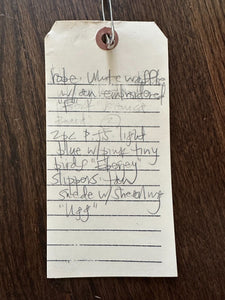 robe - white waffle
w/ an embroidered
"F"
2pc PJ's light
blue w/ pink tiny
birds "Eberjey
slippers - tan
suede w/ Shearling
"Ugg"